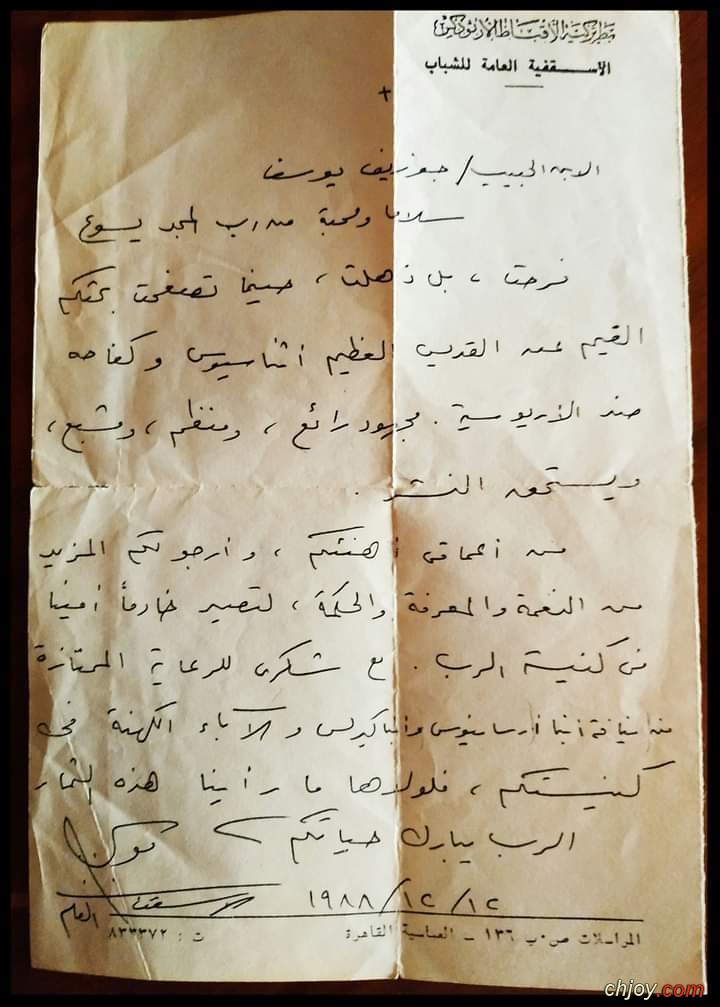 بطريركية الأقباط الأرثوذكس
الأسقفية العامة للشباب
+
الابن الحبيب / جوزيف يوسف
سلاما ومحبة من رب المجد يسوع
فرحت ، بل ذهلت ، حينما تصفحت بحثكم
القيم عن القديس العظيم أثناسيوس وكفاحه
ضد الأريوسية . مجهود رائع ، ومنظم ، ومشبع ،
ويستحق النشر .
من أعماقى أهنئكم ، وأرجو لكم المزيد
من النعمة والمعرفة والحكمة ، لتصير خادماً أمينا
فى كنيسة الرب . مع شكرى للرعاية الممتازة
من نيافة أنبا أرسانيوس والآباء الكهنة فى
كنيستكم ، فلولاها ما رأينا هذه الثمار
الرب يبارك حياتكم موسى
١٩٨٨/١٢/١٢ الأسقف العام
المراسلات ص.ب ١٣٦ - العباسية القاهرة ت : ٨٣٣٣٧٢
chjoy.com